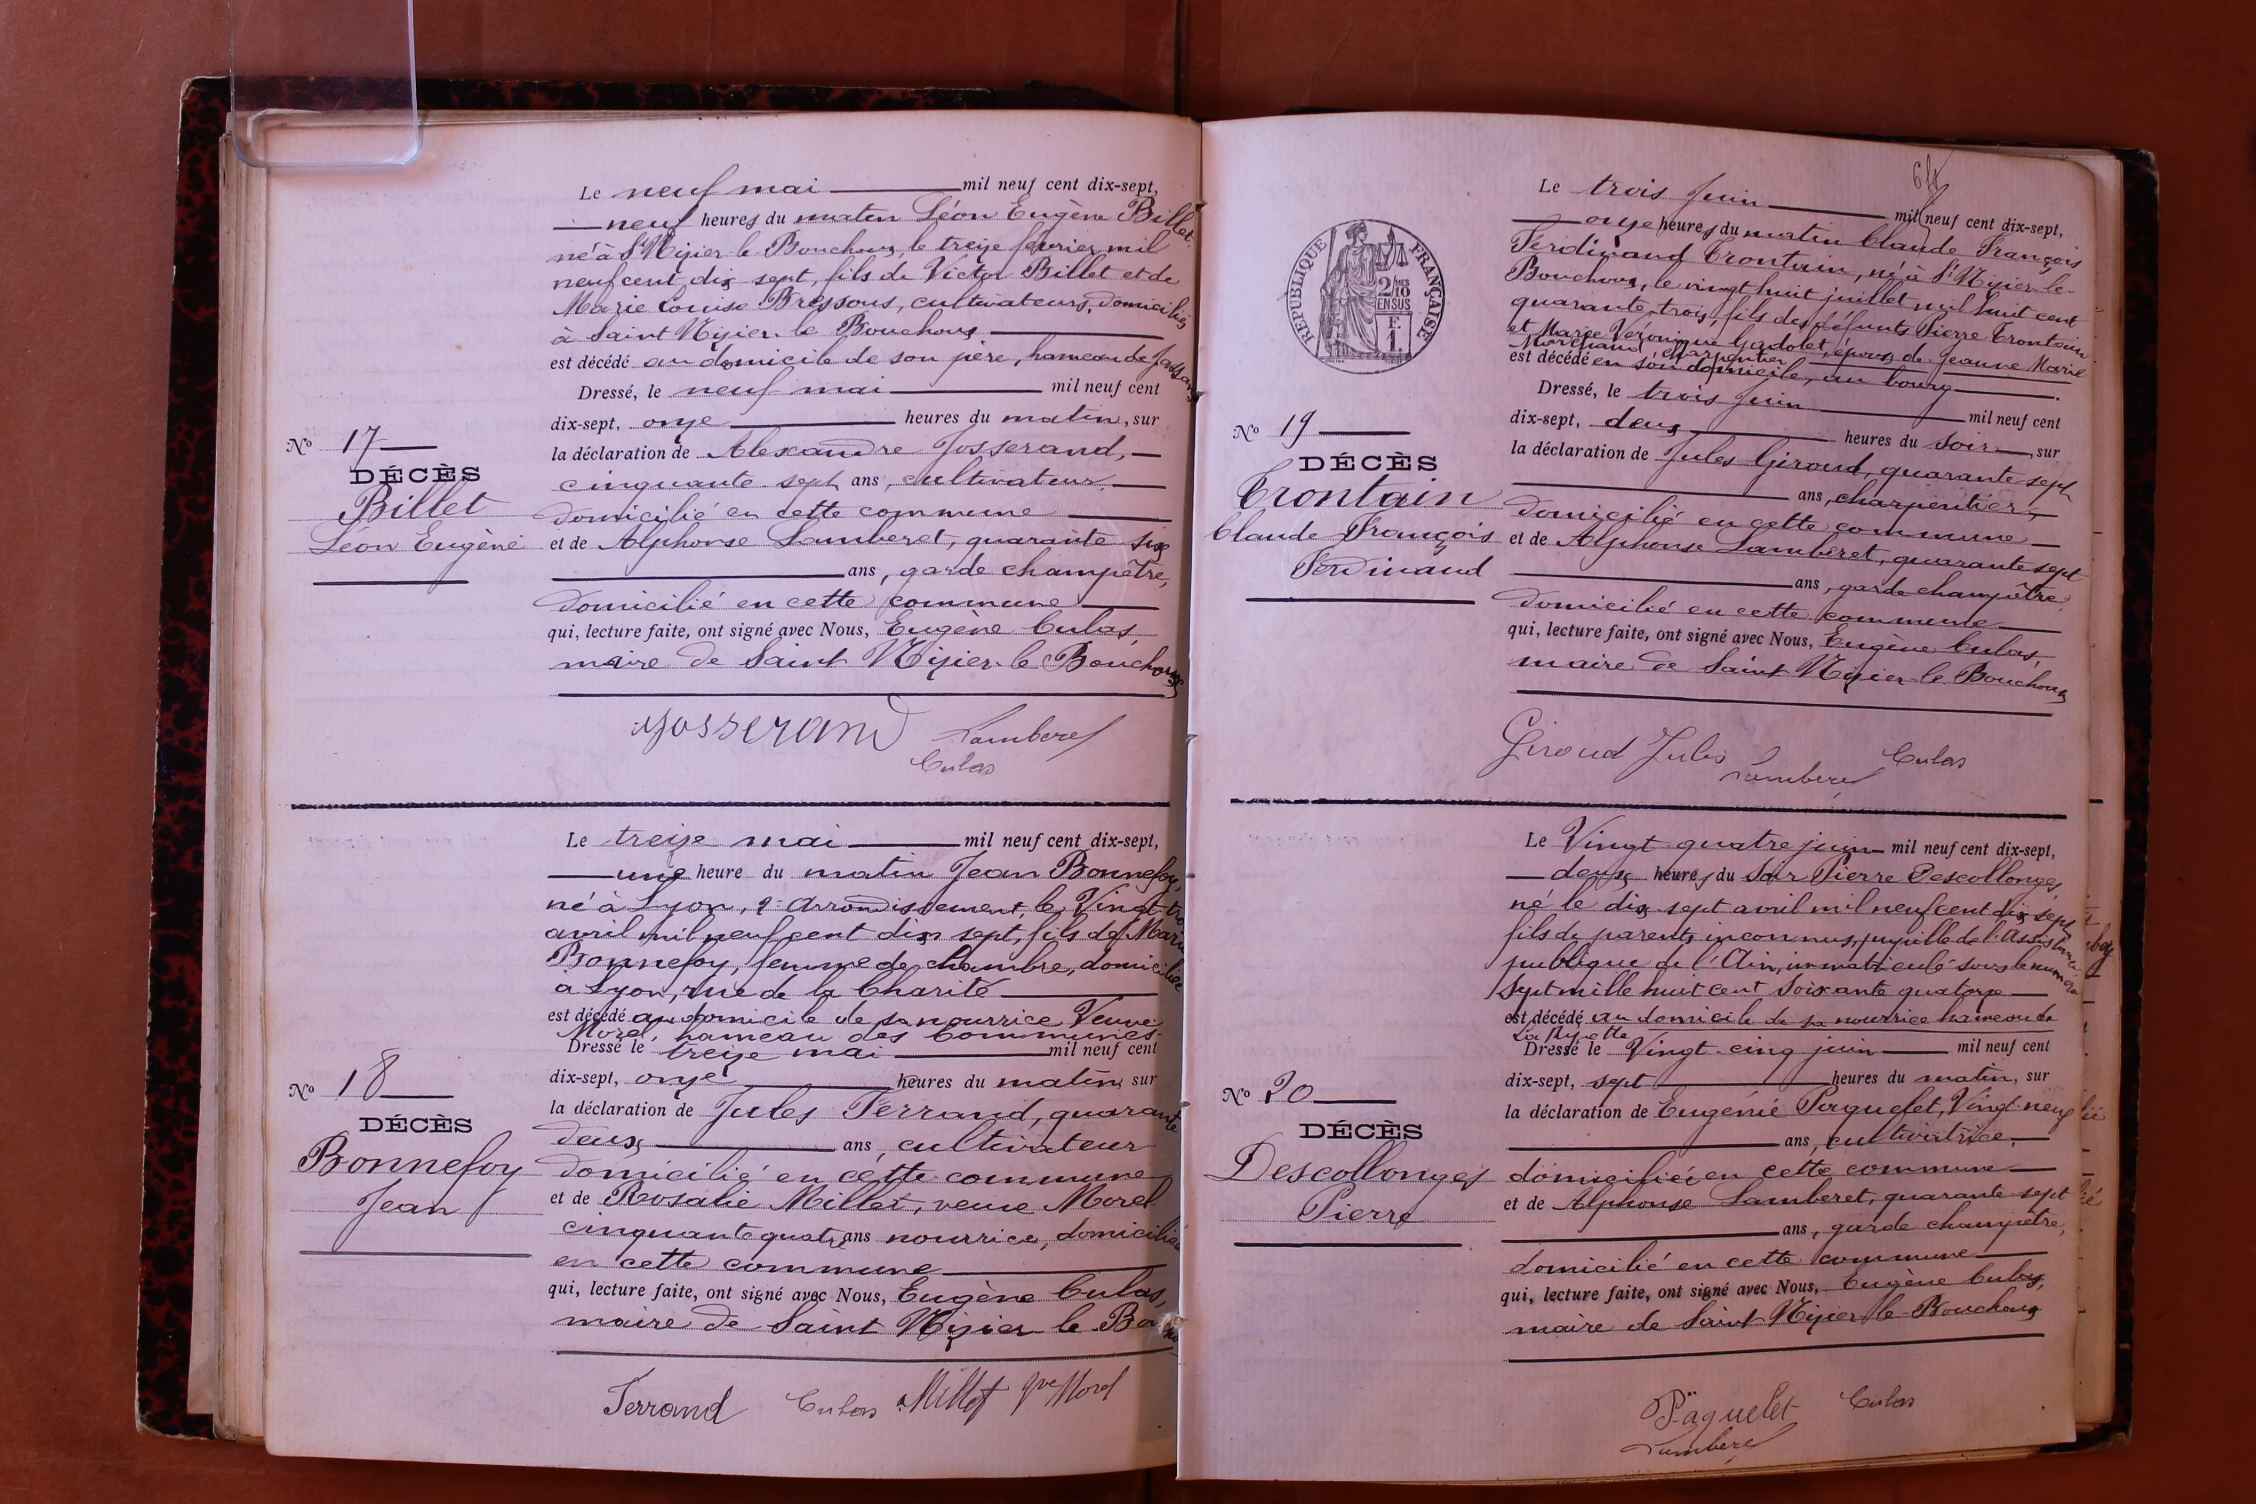 Le neuf mai mil neuf cent dix-sept,
neuf heures du matin Léon Eugène Billet
né à St Nizier le Bouchoux, le treize février mil
neuf cent dix sept, fils de Victor Billet et de
Marie Louise Bressous, cultivateurs, domiciliés
à Saint Nizier le Bouchoux
est décédé au domicile de son père, hameau de
Dressé, le neuf mai mil neuf cent
dix-sept, onze heures du matin, sur
la déclaration de Alexandre Josserand,
cinquante sept ans, cultivateur
domicilié en cette commune
et de Alphonse Lamberet, quarante six
ans, garde champêtre,
domicilié en cette commune
qui, lecture faite, ont signé avec Nous, Eugène Culas,
maire de Saint Nizier le Bouchoux
Josserand Lamberet
Culas
No 17
DÉCÈS
Billet
Léon Eugène
Le treize mai mil neuf cent dix-sept,
une heure du matin Jean Bonnefoy,
né à Lyon, 2e arrondissement, le Vingt
avril mil neuf cent dix sept, fils de Marie
Bonnefoy, femme de chambre, domiciliée
à Lyon, rue de la Charité
est décédé au domicile de sa nourrice Veuve
Morel, hameau des Communes
Dressé le treize mai mil neuf cent
dix-sept, onze heures du matin, sur
la déclaration de Jules Ferrand, quarante
deux ans, cultivateur
domicilié en cette commune
et de Rosalie Millet, veuve Morel
cinquante quatre ans nourrice, domiciliée
en cette commune
qui, lecture faite, ont signé avec Nous, Eugène Culas,
maire de Saint Nizier le
Ferrand Culas Millet Vve Morel
No 18
DÉCÈS
Bonnefoy
Jean
64
RÉPUBLIQUE FRANÇAISE
2/10 MES
EN SUS
F.
1.
Le trois Juin mil neuf cent dix-sept,
onze heures du matin Claude François
Ferdinand Trontain, né à St Nizier-le-
Bouchoux, le vingt huit juillet mil huit cent
quarante trois, fils des défunts Pierre Trontain
et Marie Véronique, époux de Jeanne Marie
Marchand, charpentier
est décédé en son domicile, au bourg
Dressé, le trois Juin mil neuf cent
dix-sept, deux heures du soir, sur
la déclaration de Jules Giroud, quarante sept
ans, charpentier,
domicilié en cette commune
et de Alphonse Lamberet, quarante sept
ans, garde champêtre
domicilié en cette commune
qui, lecture faite, ont signé avec Nous, Eugène Culas,
maire de Saint Nizier le Bouchoux
Giroud Jules Lamberet Culas
No 19
DÉCÈS
Trontain
Claude François
Ferdinand
Le Vingt quatre juin mil neuf cent dix-sept,
deux heures du soir Pierre Descollonges
né le dix sept avril mil neuf cent dix sept
fils de parents inconnus, pupille de l'Assistance
publique de l'Ain, immatriculé sous le numéro
sept mille huit cent soixante quatorze
est décédé au domicile de sa nourrice hameau de
Dressé le Vingt-cinq juin mil neuf cent
dix-sept, sept heures du matin, sur
la déclaration de Eugénie Paquelet, Vingt-neuf
ans, cultivatrice,
domiciliée en cette commune
et de Alphonse Lamberet, quarante sept
ans, garde champêtre,
domicilié en cette commune
qui, lecture faite, ont signé avec Nous, Eugène Culas,
maire de Saint Nizier le Bouchoux
Paquelet Culas
Lamberet
No 20
DÉCÈS
Descollonges
Pierre